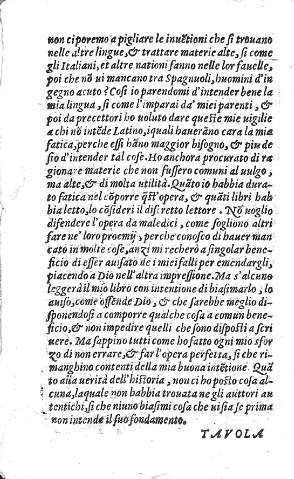 non ci poremo a pigliare le inuẽtioni che si trouano
nelle altre lingue, & trattare materie alte, si come
gli Italiani, et altre nationi fanno nelle lor fauelle,
poi che nõ ui mancano tra Spagnuoli, huomini d'in
gegno acuto? Cosi io parendomi d'intender bene la
mia lingua, si come l'imparai da' miei parenti, &
poi da precettori ho uoluto dare queste mie uigilie
a chi nõ intẽde Latino, iquali haueranno cara la mia
fatica, perche essi hãno maggior bisogno, & piu de
sio d'intender tal cose. Ho anchora procurato di ra
gionare materie che non fussero communi al uulgo,
ma alte, & di molta utilità. Quãto io habbia dura-
to fatica nel cõporre q̃st'opera, & quãti libri hab
bia letto, lo cõsideri il discretto lettore. Nõ uoglio
difendere l'opera da maledici, come sogliono altri
fare ne' loro proemij, perche conosco di hauer man
cato in molte cose, anzi mi recherò a singolar bene-
ficio di esser auisato de i miei falli per emendargli,
piacendo a Dio nell'altra impressione. Ma s'alcuno
leggerà il mio libro con intentione di biasimarlo, lo
auiso, come offende Dio, & che sarebbe meglio di-
sponendosi a comporre qualche cosa a comun bene-
ficio, & non impedire quelli che sono disposti a scri
uere. Ma sappino tutti come ho fatto ogni mio sfor
zo di non errare, & far l'opera perfetta, si che ri-
manghino contenti della mia buona intẽtione. Quã
to alla uerità dell'historia, non ci ho posto cosa al-
cuna, laquale non habbia trouata ne gli auttori au
tentichi, si che niuno biasimi cosa che ui sia se prima
non intende il suo fondamento.
TAVOLA